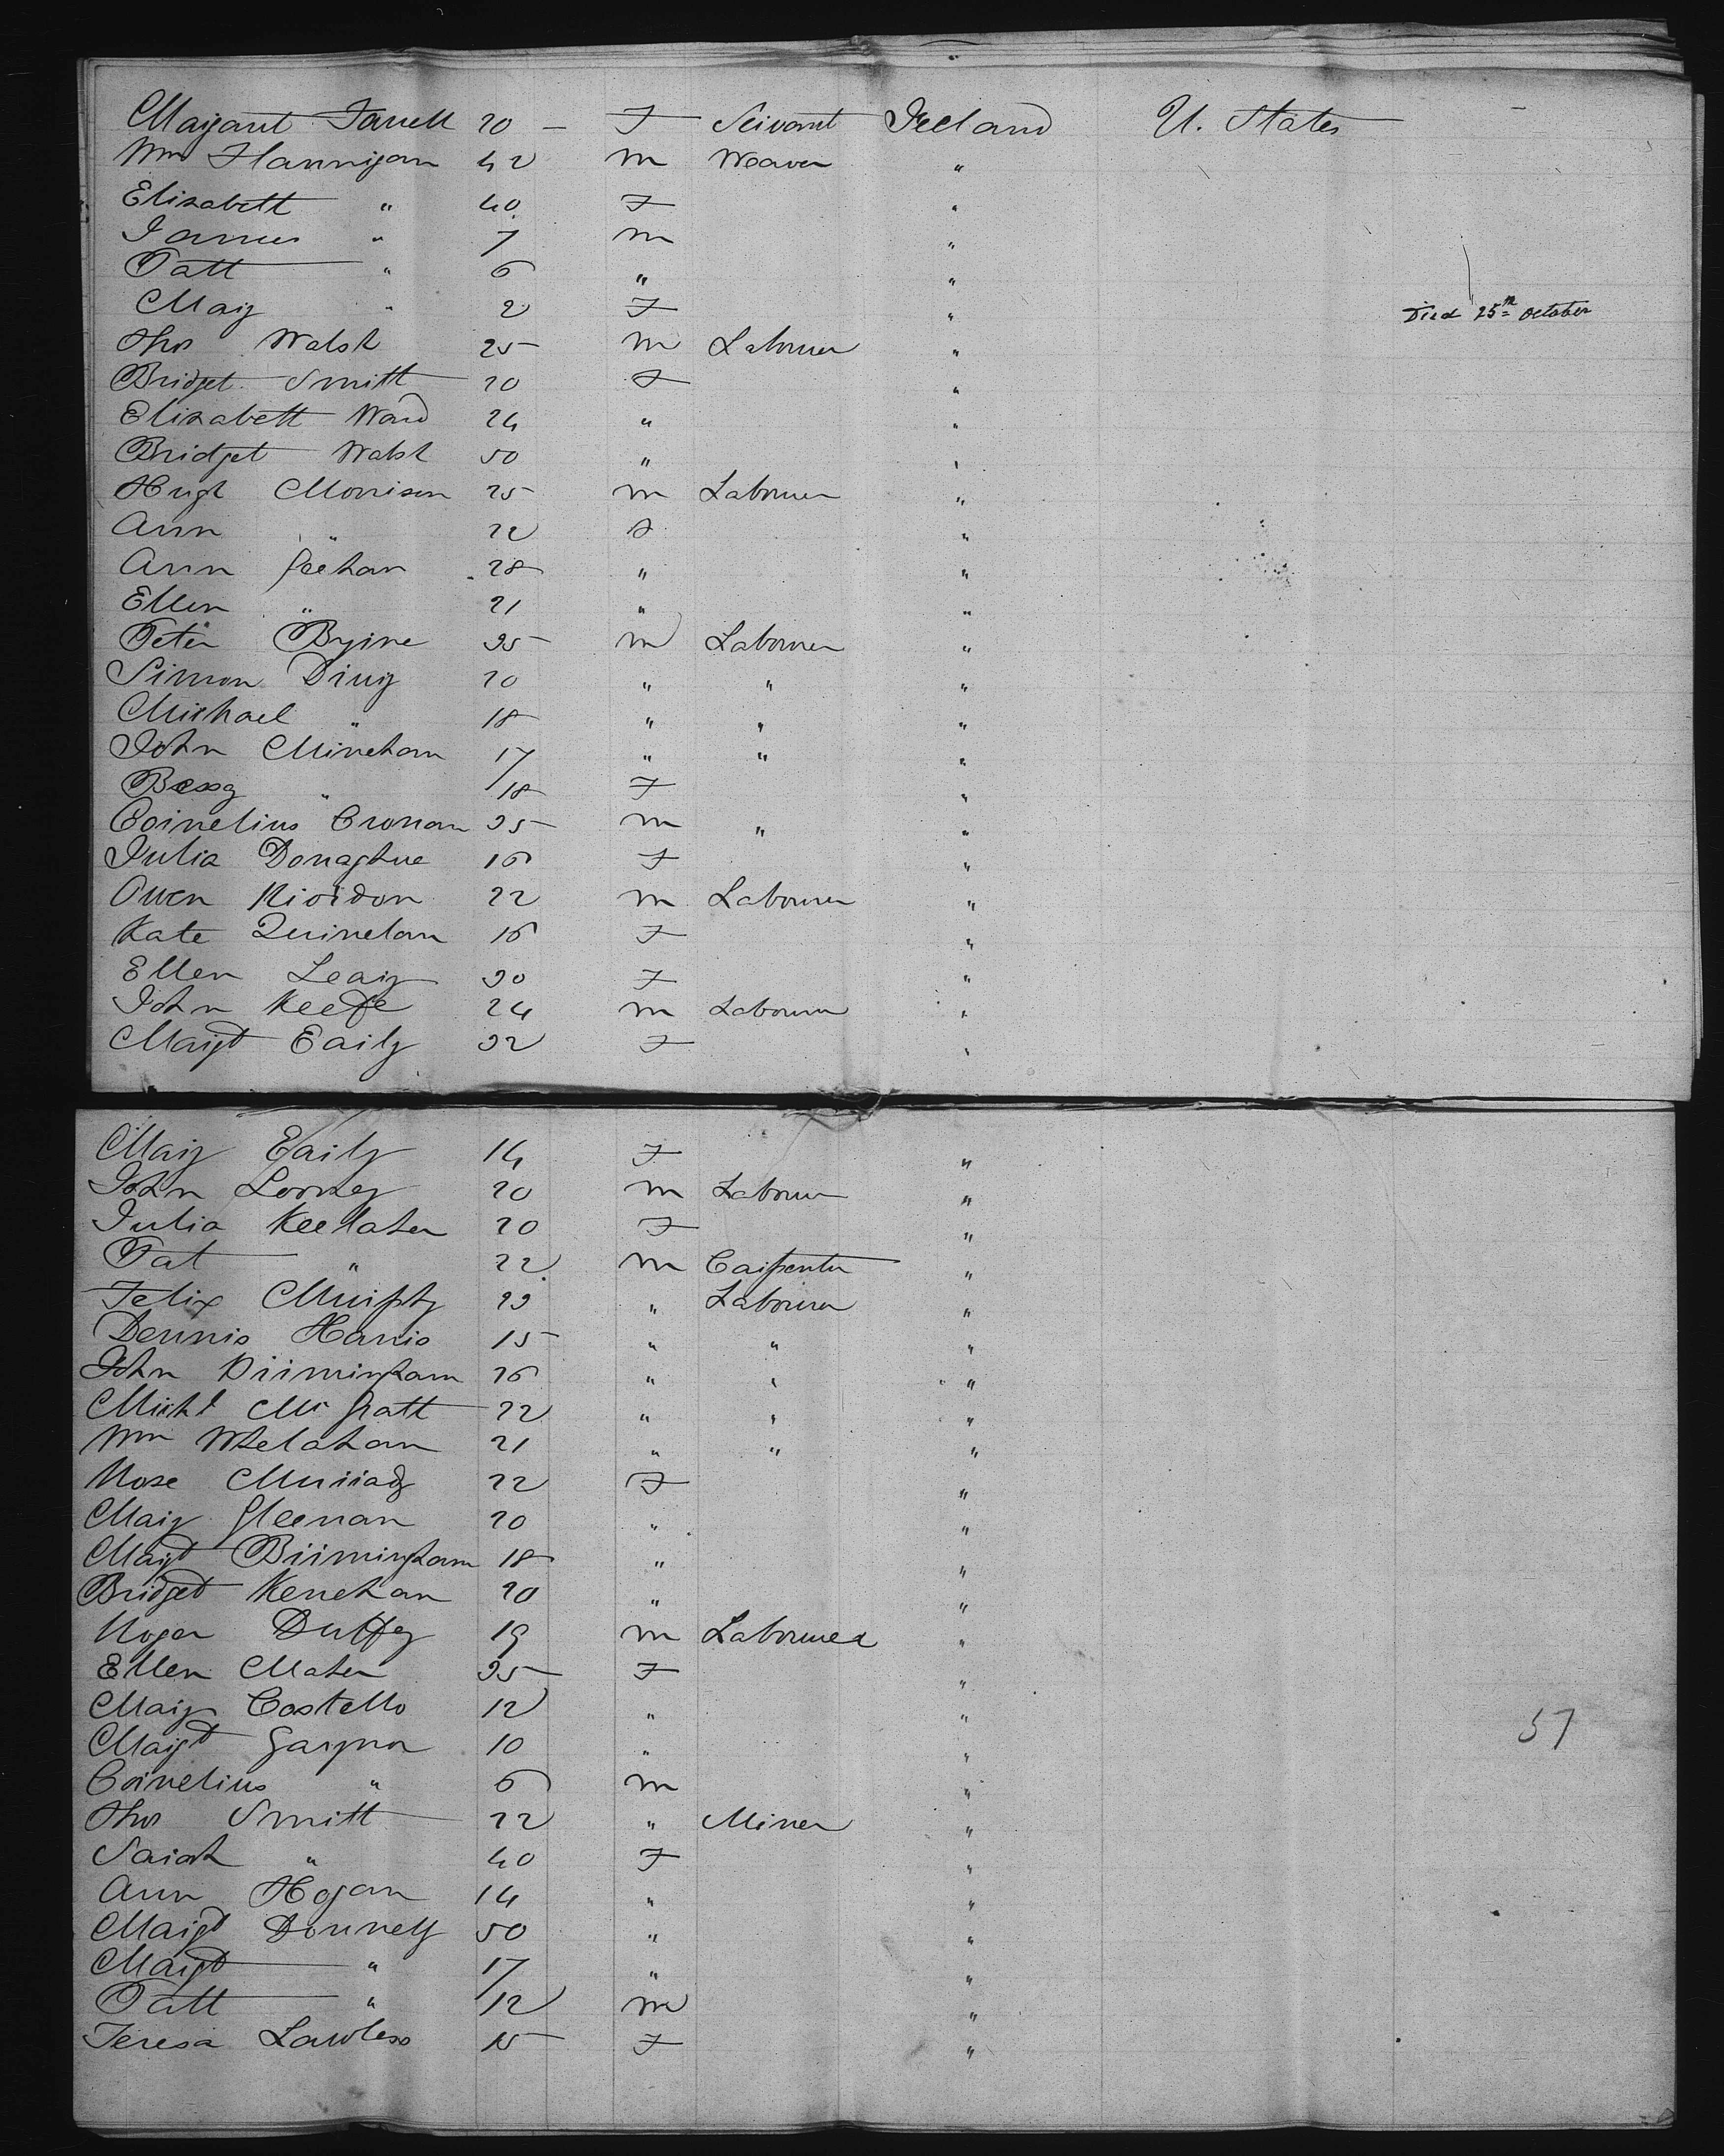 Margaret Farrell 20 – F Servant Ireland U. States –
Wm Hannigan 42 m Weaver "
Elizabeth " 40 F "
James " 7 m "
Patt " 6 " "
Mary " 2 F " Died 25th October
Thos Walsh 25 m Labourer "
Bridget Smith 20 F "
Elizabeth Ward 24 " "
Bridget Walsh 50 " "
Hugh Morrison 25 m Labourer "
Ann " 22 F "
Ann Geehan 28 " "
Ellen " 21 " "
Peter Byrne 35 m Labourer "
Simon 20 " " "
Michael " 18 " " "
John Minehan 17 " " "
Bessy " 18 F "
Cornelius Cronan 35 m " "
Julia Donaghue 16 F "
Owen Riordon 22 m Labourer "
Kate Quinelan 16 F "
Ellen Leary 30 F "
John Keefe 24 m Labourer "
Margt Early 32 F "
Mary Early 14 F "
John Looney 20 m Labourer "
Julia Kellaher 20 F "
Pat " 22 m Carpenter "
Felix Murphy 23 " Labourer "
Dennis Harris 15 " " "
John Birmingham 26 " " "
Michl McGrath 22 " " "
Wm Whelahan 21 " " "
Rose Murray 22 F "
Mary Gleenan 20 " "
Margt Birmingham 18 " "
Bridget Kenehan 20 " "
Roger Duffey 19 m Labourer "
Ellen Maher 35 F "
Mary Costello 12 " "
Margt Gaynor 10 " "
57
Cornelius " 6 m "
Thos Smith 22 " Miner "
Sarah " 40 F "
Ann Hogan 14 " "
Margt Donnelly 50 " "
Margt " 17 " "
Patt " 12 m "
Teresa Lawless 15 F "